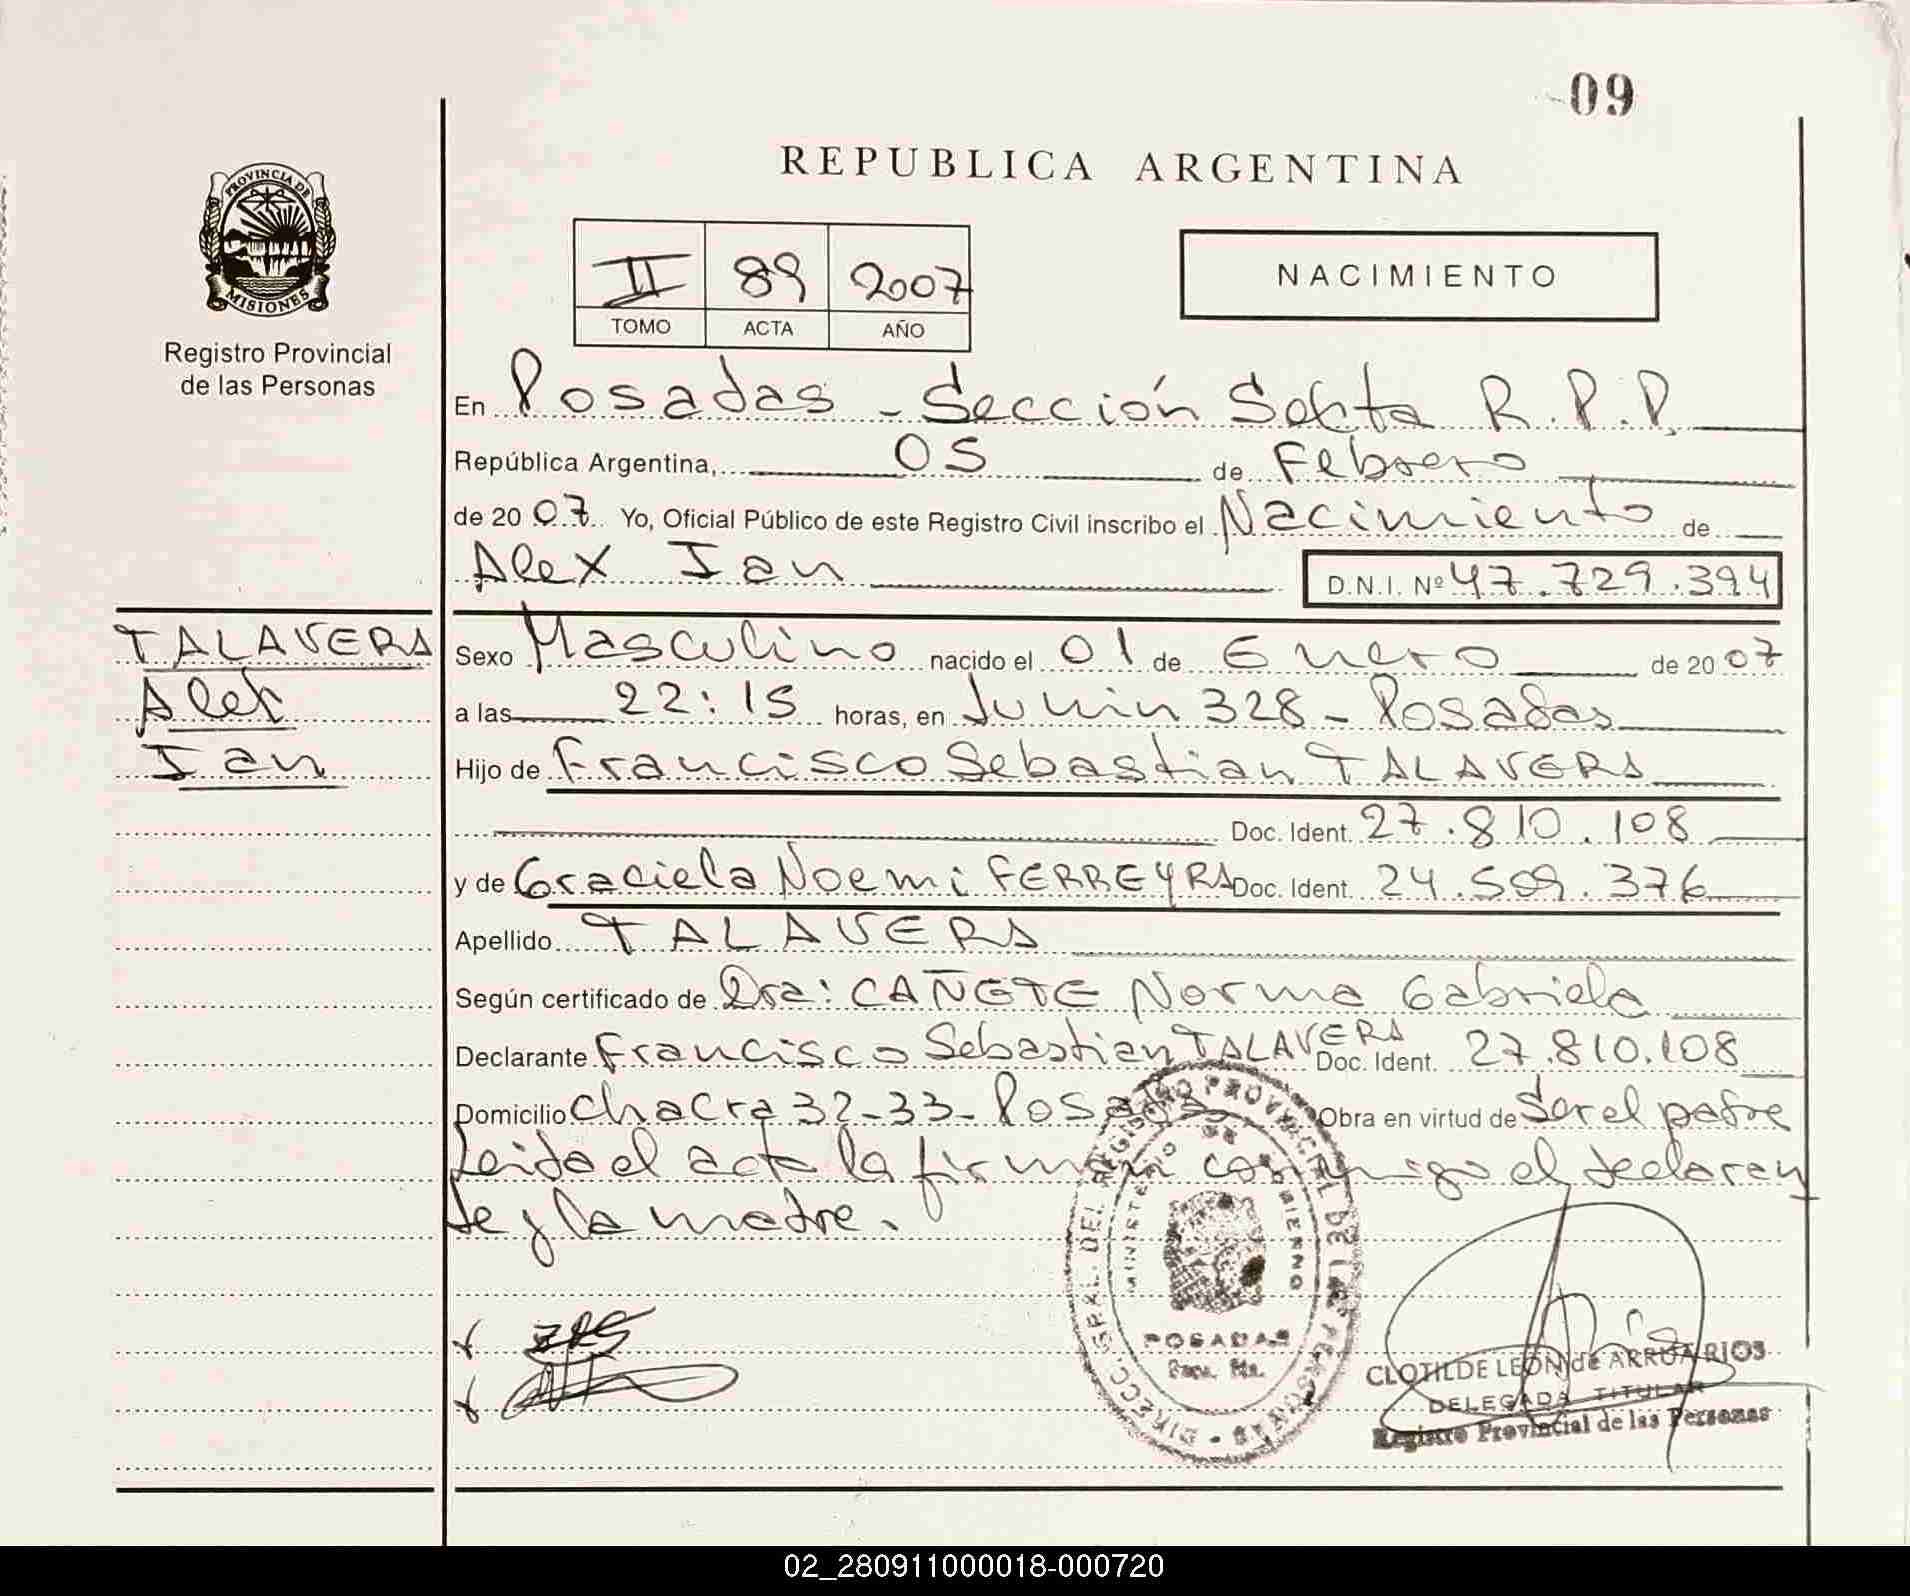 09
REPUBLICA ARGENTINA
PROVINCIA DE
MISIONES
Registro Provincial
de las Personas
II 89 2007
TOMO ACTA AÑO
NACIMIENTO
En Posadas - Sección Sexta R.P.P.
República Argentina, 05 de Febrero
de 20 07 Yo, Oficial Público de este Registro Civil inscribo el Nacimiento de
Alex Ian D.N.I. Nº 47.729.394
TALAVERA
Alex
Ian
Sexo Masculino nacido el 01 de Enero de 20 07
a las 22:15 horas, en Junin 328 - Posadas
Hijo de Francisco Sebastian TALAVERA
Doc. Ident. 27.810.108
y de Graciela Noemi FERREYRA Doc. Ident. 24.509.376
Apellido TALAVERA
Según certificado de Dra: CAÑETE Norma Gabriela
Declarante Francisco Sebastian TALAVERA Doc. Ident. 27.810.108
Domicilio Chacra 32-33- Posadas Obra en virtud de Ser el padre
Leida el acta la firman conmigo el declaran
te y la madre.
DIRECC. GRAL. DEL REGISTRO PROVINCIAL DE LAS PERSONAS
MINISTERIO DE GOBIERNO
POSADAS
CLOTILDE LEON de ARRUA RIOS
DELEGADA TITULAR
Registro Provincial de las Personas
02_280911000018-000720